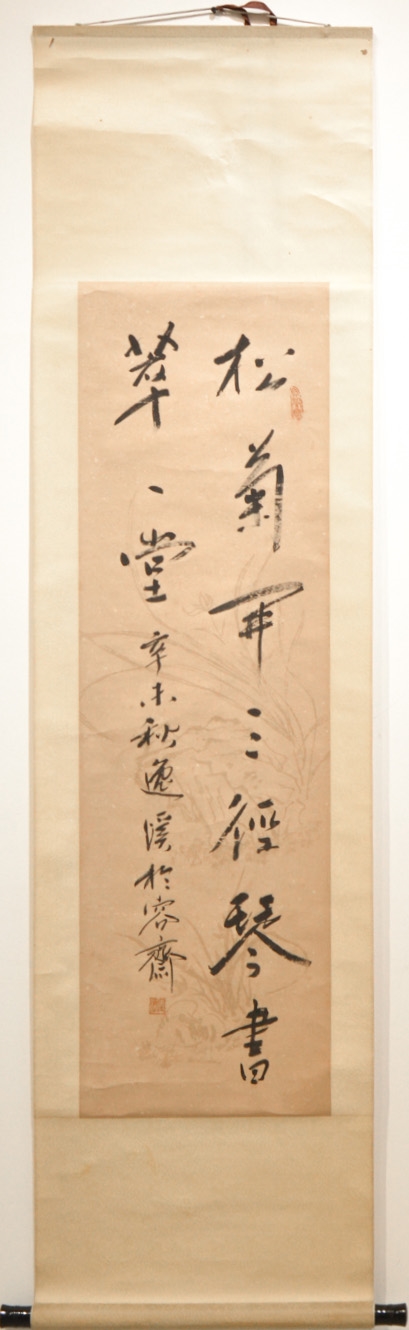 松菊開三徑琴書
萃一堂
辛未秋逸溪於容齋